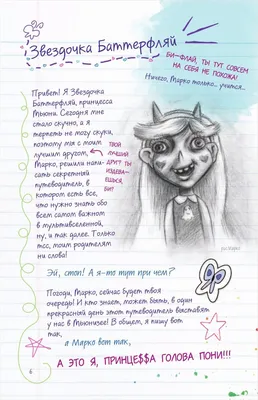 Звездочка Баттерфляй
БИ-ФЛАЙ, ТЫ ТУТ СОВСЕМ
НА СЕБЯ НЕ ПОХОЖА!
Ничего, Марко только... учится...
Привет! Я Звездочка
Баттерфляй, принцесса
Мьюни. Сегодня мне
стало скучно, а я
терпеть не могу скуки,
поэтому мы с моим
лучшим другом,
Марко, решили напи-
сать секретный
путеводитель, в
котором есть все,
что нужно знать обо
всем самом важном
в мультивселенной,
ну, и так далее. Только
тсс, моим родителям
ни слова!
ТВОЙ
ЛУЧШИЙ
ДРУГ? ТЫ
ИЗДЕВА-
ЕШЬСЯ,
БИ?
Эй, стоп! А я-то тут при чем?
Погоди, Марко, сейчас будет твоя
очередь! И кто знает, может быть, в один
прекрасный день этот путеводитель выставят
у нас в Мьюнизее! В общем, я пишу вот
так,
а Марко вот так,
А ЭТО Я, ПРИНЦЕ$$А ГОЛОВА ПОНИ!!!
6